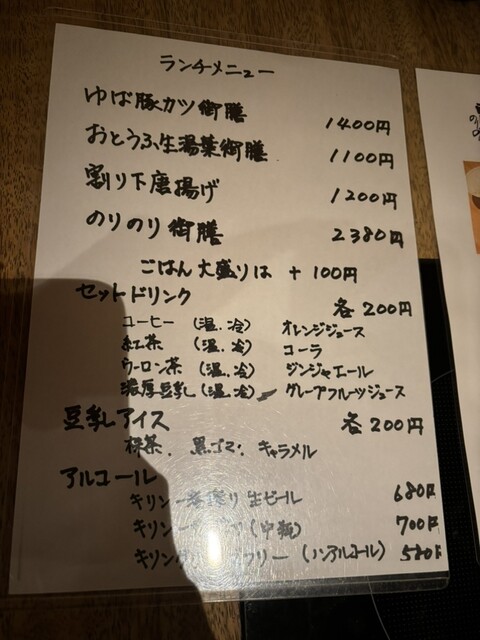 ランチメニュー
ゆば豚カツ御膳 1400円
おとうふ生湯葉御膳 1100円
割り下唐揚げ 1200円
のりのり御膳 2380円
ごはん大盛りは + 100円
セットドリンク 各200円
コーヒー (温、冷) オレンジジュース
紅茶 (温、冷) コーラ
ウーロン茶 (温、冷) ジンジャエール
濃厚豆乳 (温、冷) グレープフルーツジュース
豆乳アイス 各200円
抹茶、黒ゴマ、キャラメル
アルコール
キリン一番搾り生ビール 680円
キリン (中瓶) 700円
キリン フリー (ノンアルコール) 580円